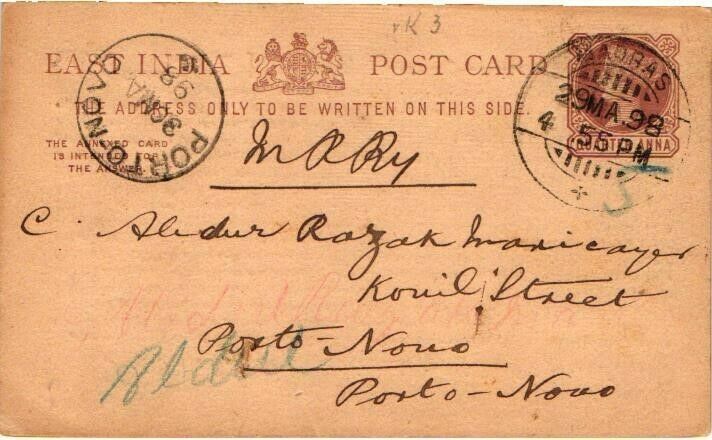 K 3
EAST INDIA POST CARD
THE ADDRESS ONLY TO BE WRITTEN ON THIS SIDE.
THE ANNEXED CARD
IS INTENDED FOR
THE ANSWER.
PORTO NOVO
30 MA
98
MADRAS
29 MA. 98
4 55 PM
QUARTER ANNA
M R Ry
C. Abdur Razak Maricayer
Kovil Street
Porto-Novo
Porto-Novo
Abdul